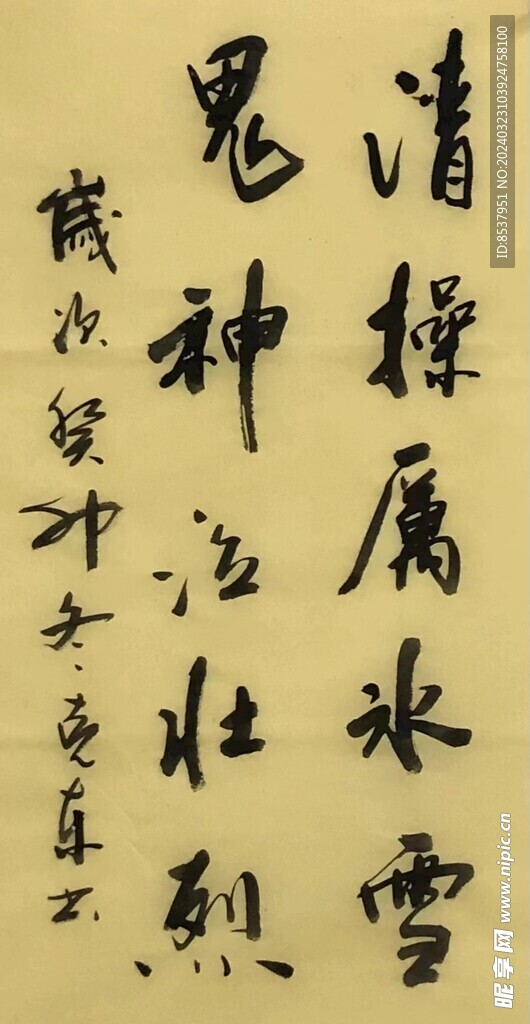 清操厲冰雪
鬼神泣壮烈
歲次癸卯冬克東书
ID:8537951 NO:20240323103924758100
昵享网 www.nipic.cn